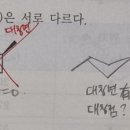 )은 서로 다르다.
대칭면
=0
대칭면 有
대칭점?